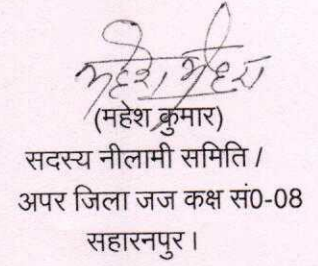 महेश
(महेश कुमार)
सदस्य नीलामी समिति /
अपर जिला जज कक्ष सं0-08
सहारनपुर।